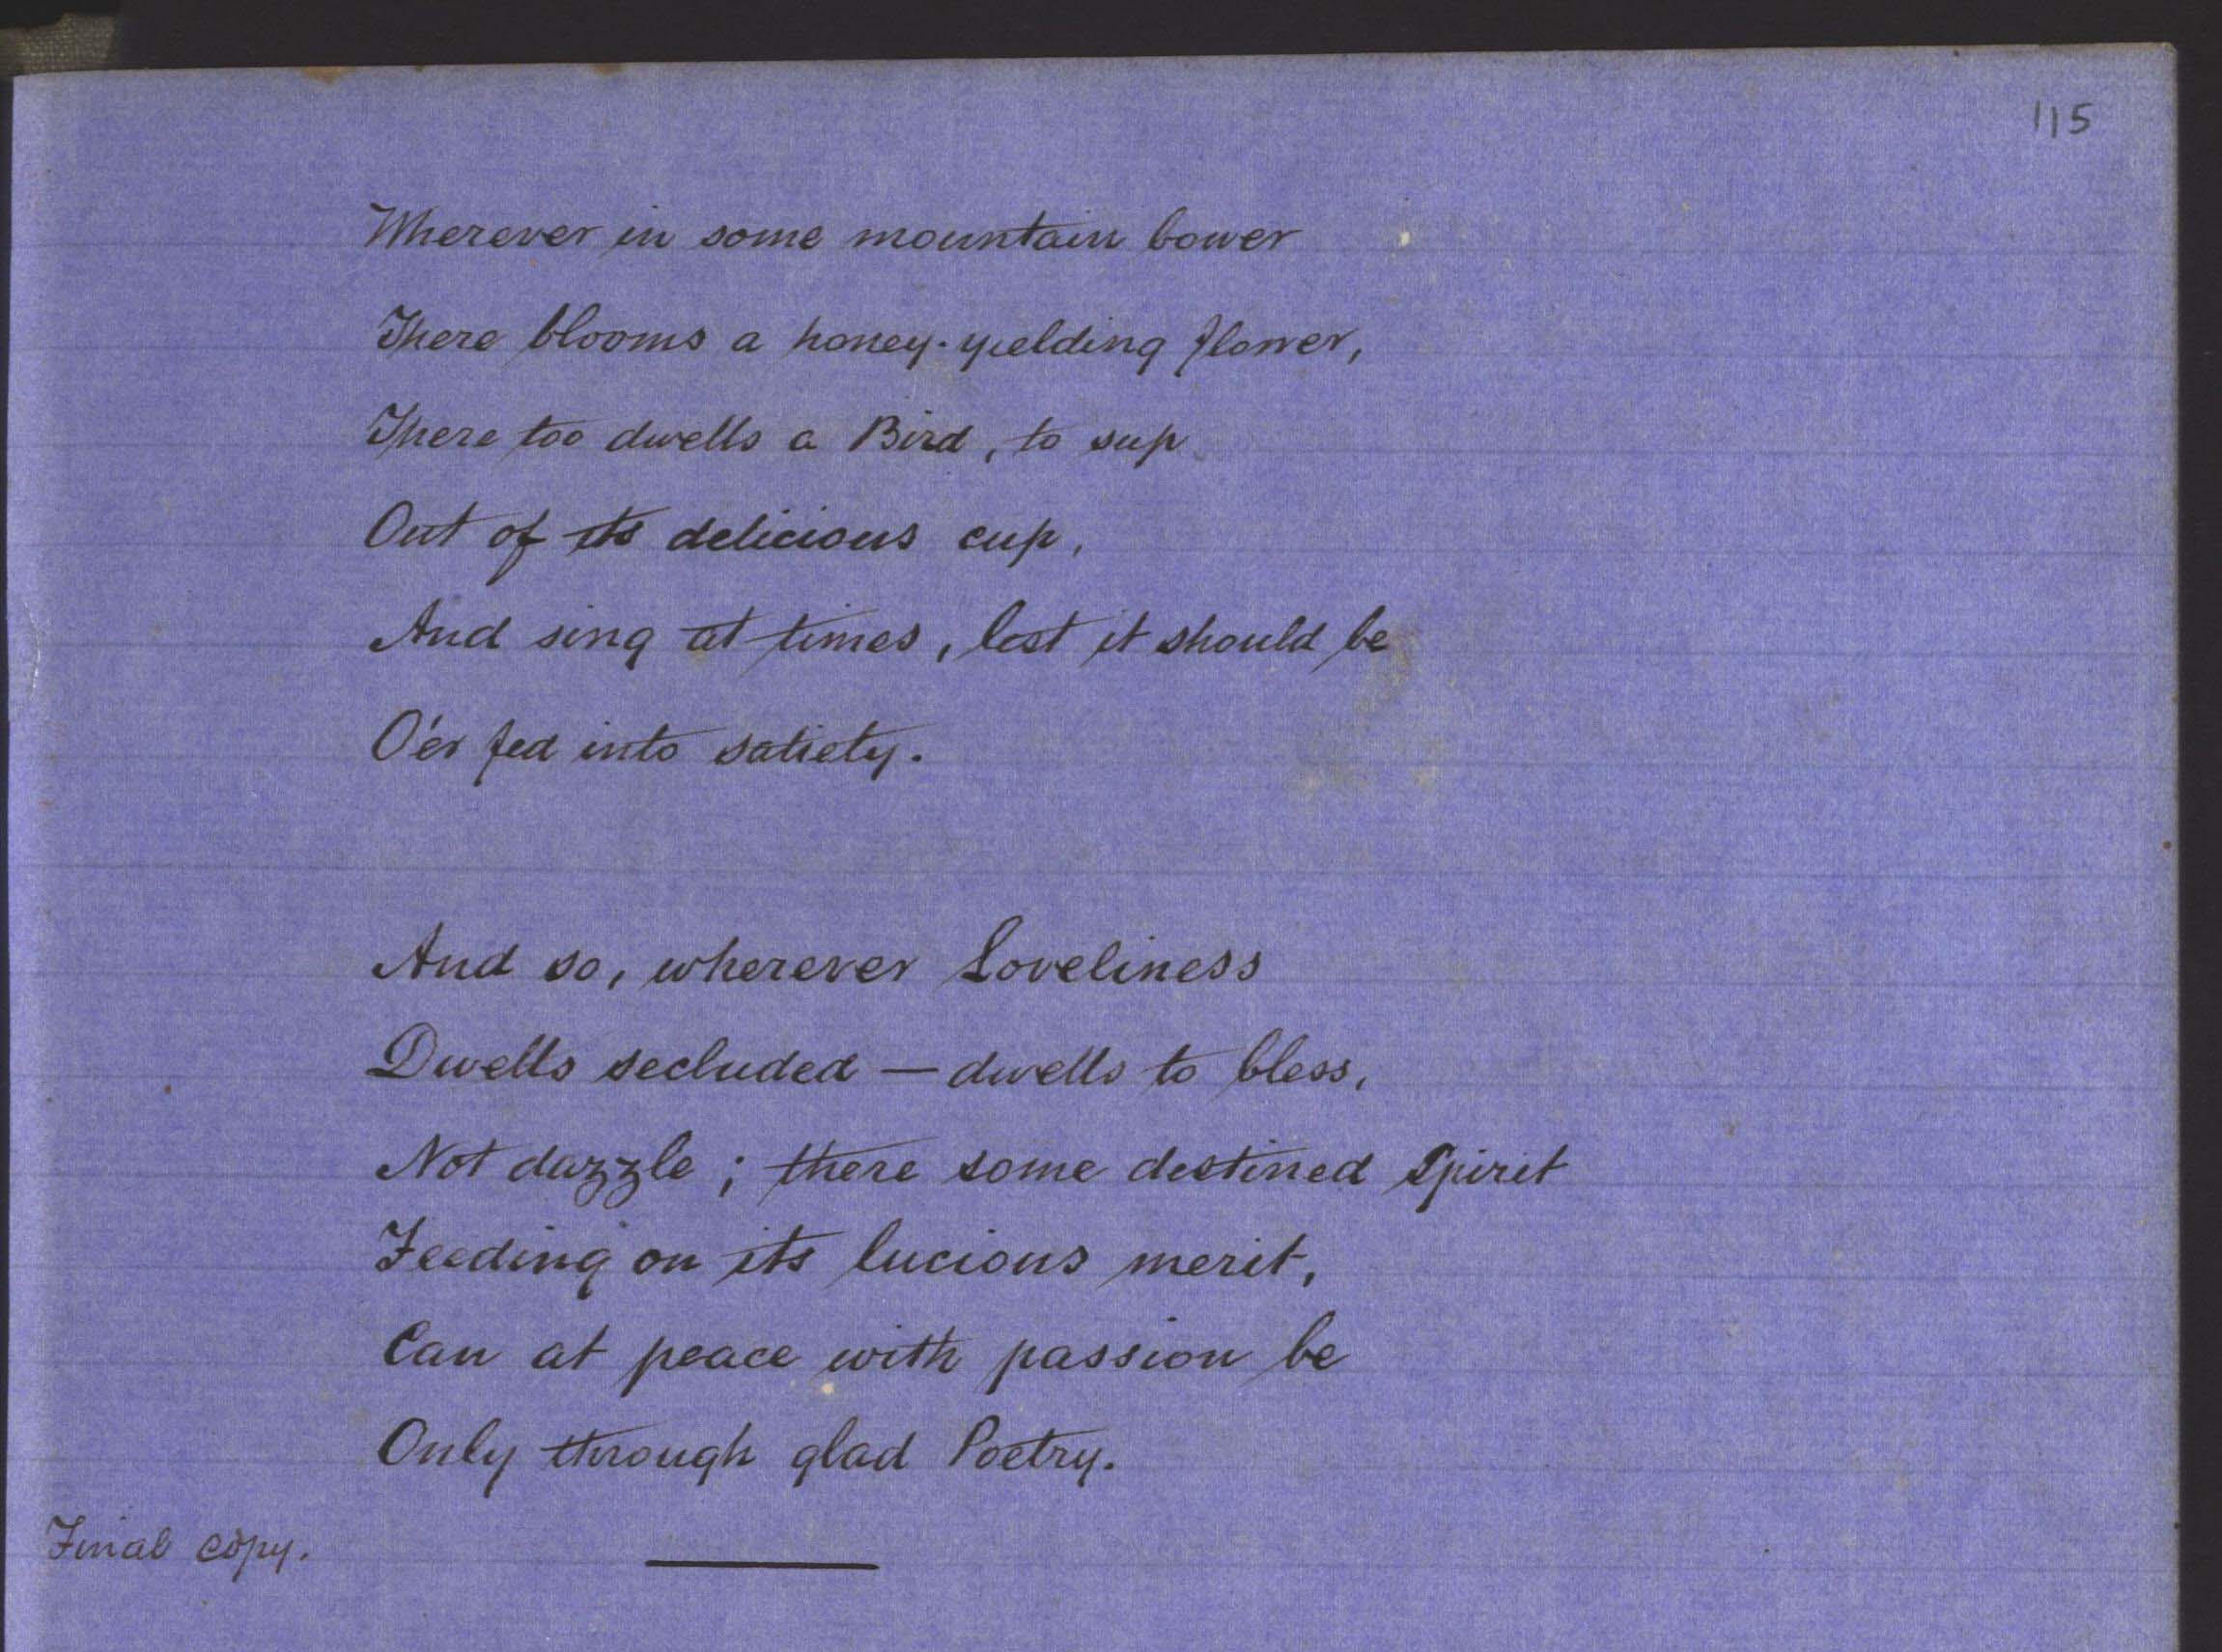 115
Wherever in some mountain bower
There blooms a honey-yielding flower,
There too dwells a Bird, to sup
Out of its delicious cup,
And sing at times, lest it should be
O'er fed into satiety.
And so, wherever Loveliness
Dwells secluded — dwells to bless,
Not dazzle; there some destined Spirit
Feeding on its lucious merit,
Can at peace with passion be
Only through glad Poetry.
Final copy.